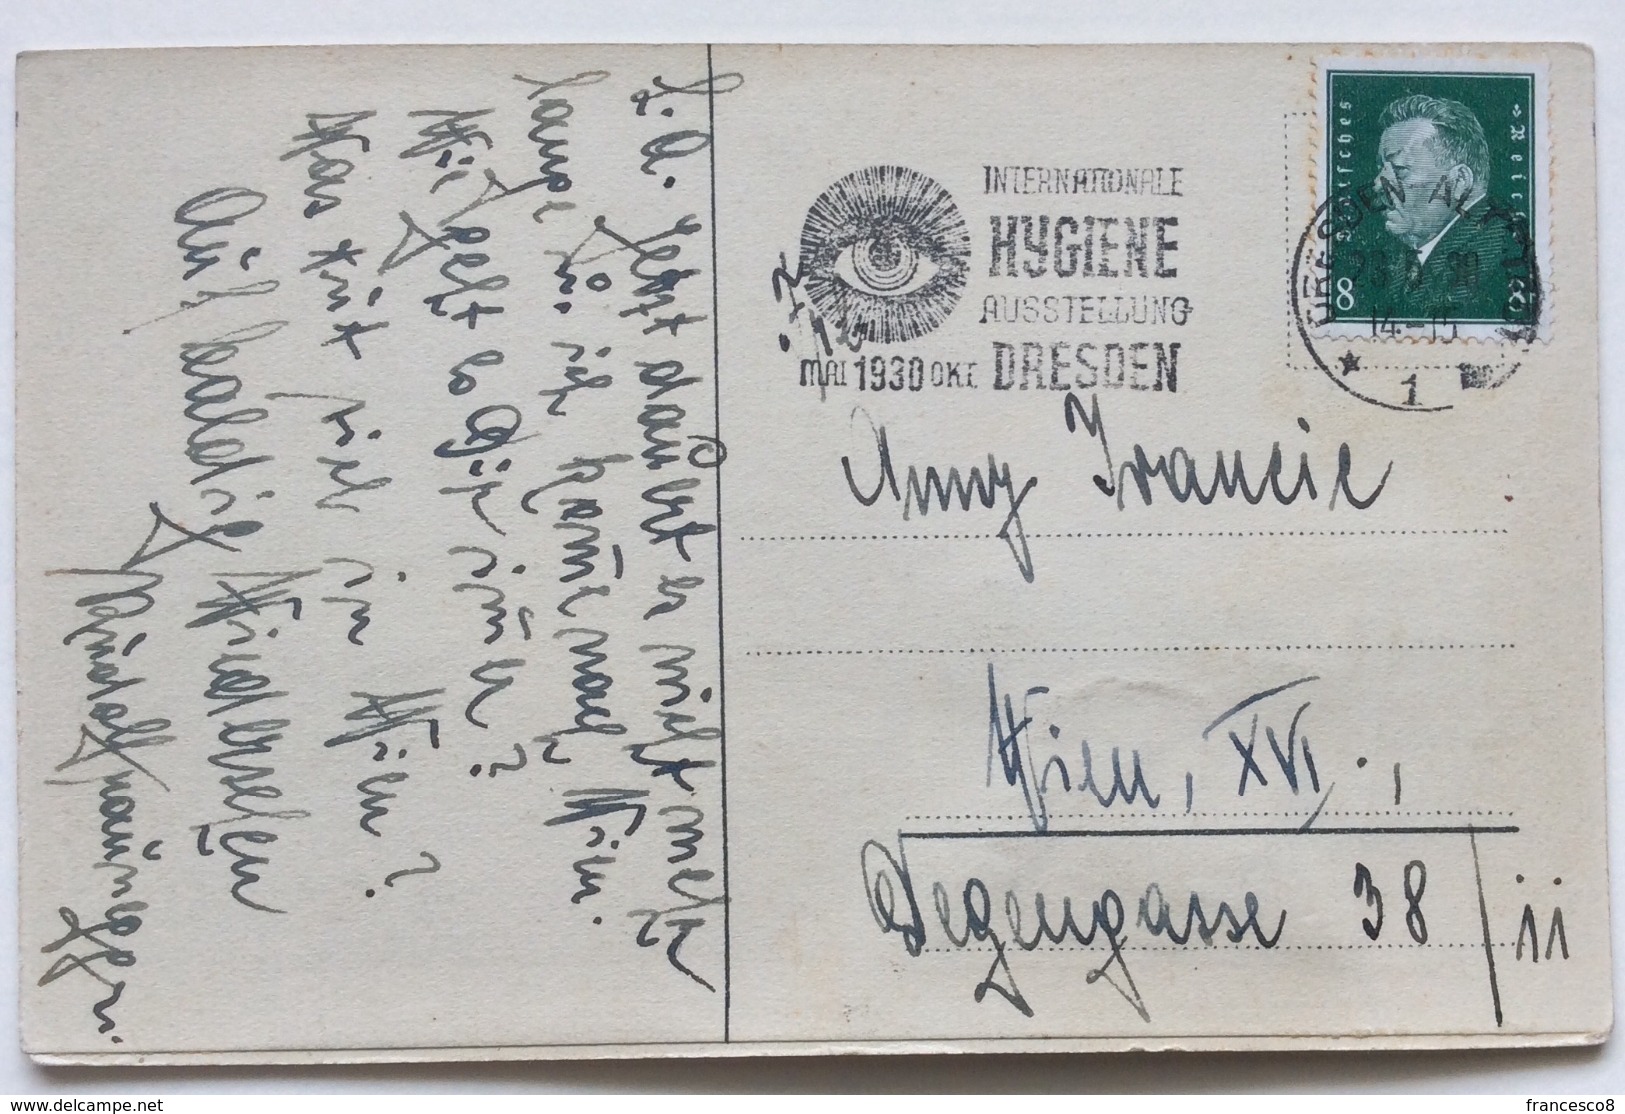 L. A. Jetzt dauert es nicht mehr
lange u. ich komme nach Wien.
Wie geht es Dir immer?
Was tut sich in Wien?
Auf baldig Wiedersehen
INTERNATIONALE
HYGIENE
AUSSTELLUNG
MAI 1930 OKT DRESDEN
Deutsches Reich
8 8
DRESDEN ALTSTADT
14-15
1
Anny Francic
Wien, XVI.,
Degengasse 38/ii
delcampe.net
francesco8